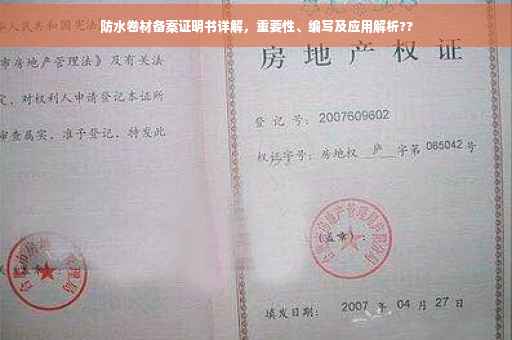 防水卷材备案证明书详解，重要性、编写及应用解析??
人民共和国宪法
市房地产管理法》及有关法
定，对权利人申请登记本证所
审查属实，准予登记，特发此
房地产权证
登记号：2007609602
权证字号：房地权 庐 字第 085042 号
房地产管理局
(盖章)：
填发日期：2007 年 04 月 27 日